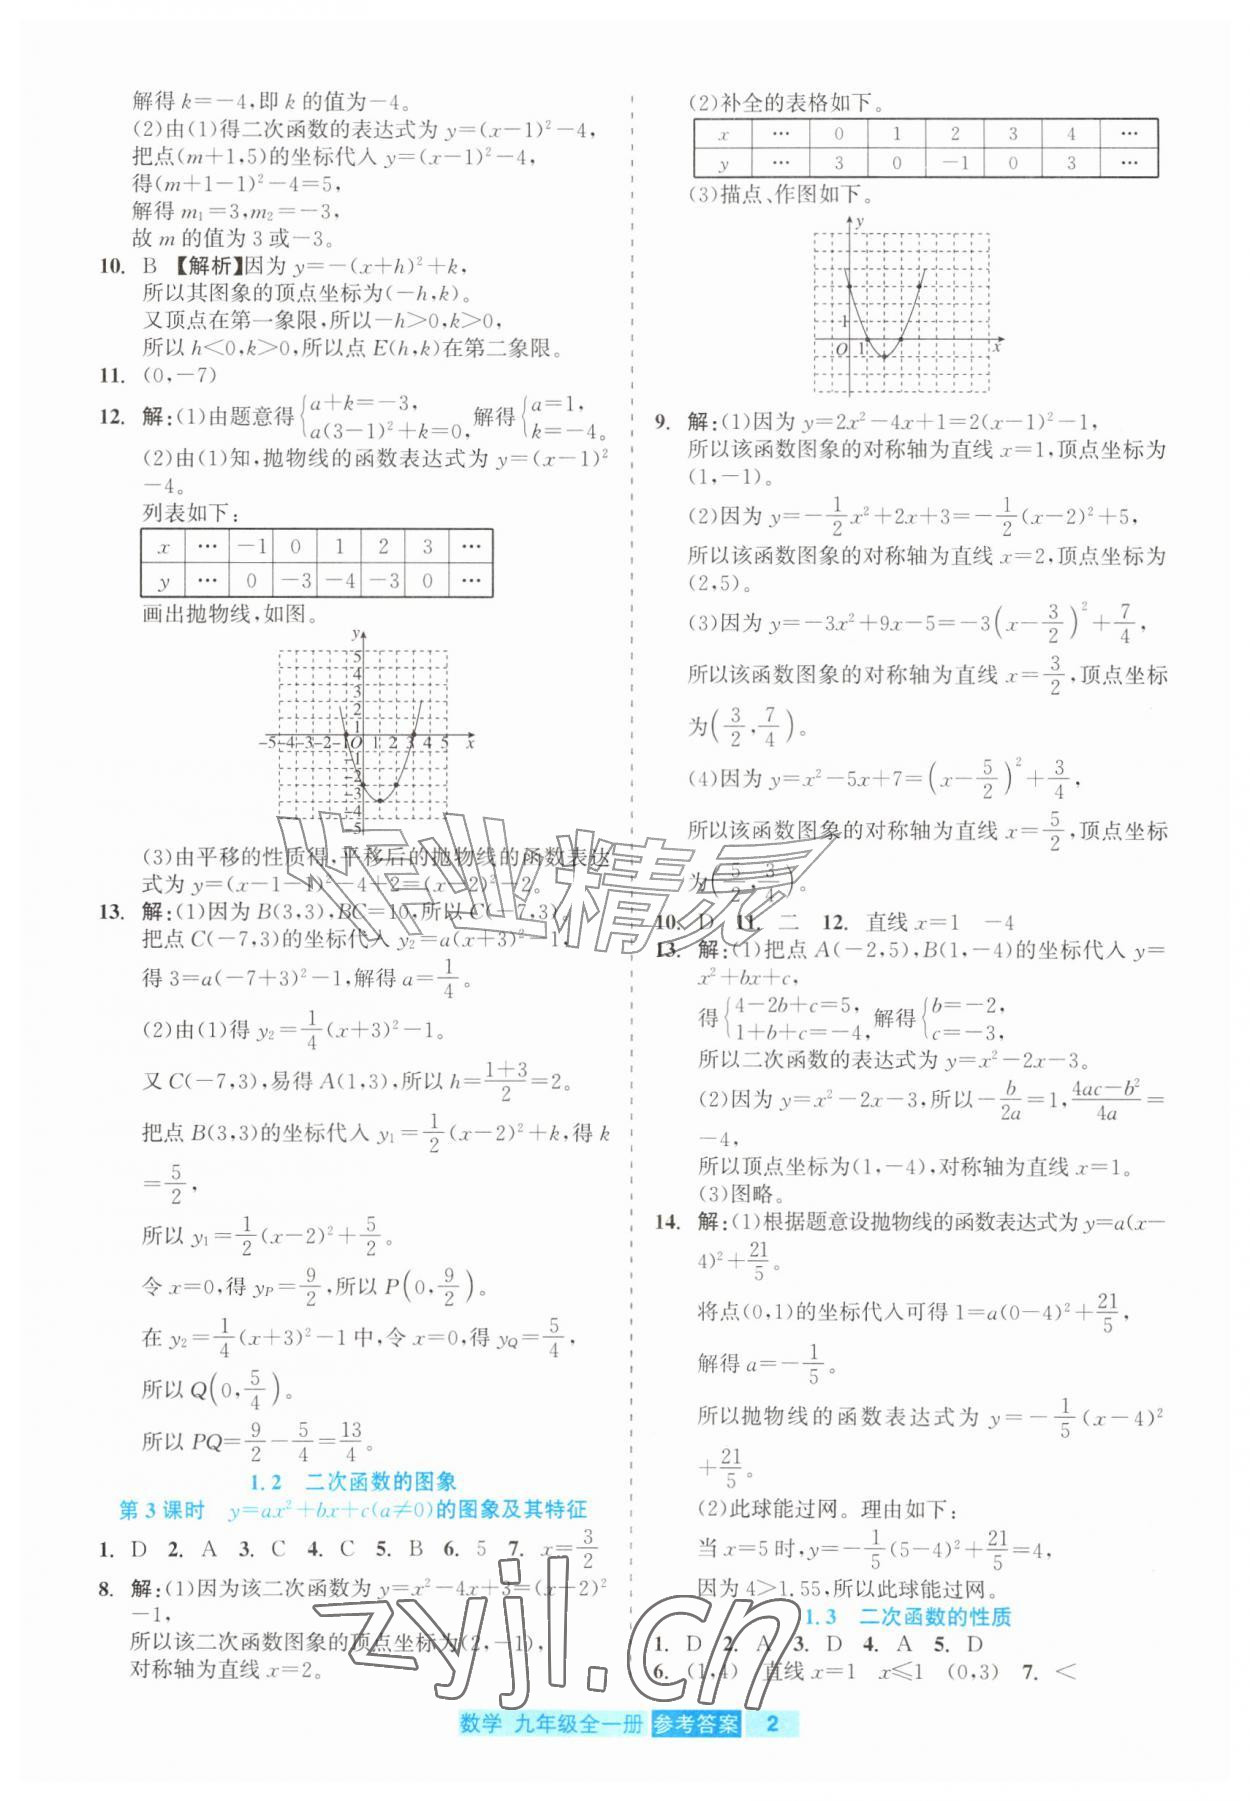 解得 k=-4,即 k 的值为-4。
(2)由(1)得二次函数的表达式为 y=(x-1)²-4,
把点(m+1,5)的坐标代入 y=(x-1)²-4,
得(m+1-1)²-4=5,
解得 m₁=3,m₂=-3,
故 m 的值为 3 或-3。
10. B 【解析】因为 y=-(x+h)²+k,
所以其图象的顶点坐标为(-h,k)。
又顶点在第一象限,所以-h>0,k>0,
所以 h<0,k>0,所以点 E(h,k)在第二象限。
11. (0,-7)
12. 解:(1)由题意得{a+k=-3, a(3-1)²+k=0, 解得{a=1, k=-4。
(2)由(1)知,抛物线的函数表达式为 y=(x-1)²
-4。
列表如下:
x … -1 0 1 2 3 …
y … 0 -3 -4 -3 0 …
画出抛物线,如图。
y
5
4
3
2
1
-5-4-3-2-1 O 1 2 3 4 5 x
-1
-2
-3
-4
-5
(3)由平移的性质得,平移后的抛物线的函数表达
式为 y=(x-1-1)²-4+2=(x-2)²-2。
13. 解:(1)因为 B(3,3),BC=10,所以 C(-7,3)。
把点 C(-7,3)的坐标代入 y₂=a(x+3)²-1,
得 3=a(-7+3)²-1,解得 a=1/4。
(2)由(1)得 y₂=1/4(x+3)²-1。
又 C(-7,3),易得 A(1,3),所以 h=(1+3)/2=2。
把点 B(3,3)的坐标代入 y₁=1/2(x-2)²+k,得 k
=5/2,
所以 y₁=1/2(x-2)²+5/2。
令 x=0,得 y_P=9/2,所以 P(0,9/2)。
在 y₂=1/4(x+3)²-1 中,令 x=0,得 y_Q=5/4,
所以 Q(0,5/4)。
所以 PQ=9/2-5/4=13/4。
1.2 二次函数的图象
第 3 课时 y=ax²+bx+c(a≠0)的图象及其特征
1. D 2. A 3. C 4. C 5. B 6. 5 7. x=3/2
8. 解:(1)因为该二次函数为 y=x²-4x+3=(x-2)²
-1,
所以该二次函数图象的顶点坐标为(2,-1),
对称轴为直线 x=2。
(2)补全的表格如下。
x … 0 1 2 3 4 …
y … 3 0 -1 0 3 …
(3)描点、作图如下。
y
1
O 1 x
9. 解:(1)因为 y=2x²-4x+1=2(x-1)²-1,
所以该函数图象的对称轴为直线 x=1,顶点坐标为
(1,-1)。
(2)因为 y=-1/2x²+2x+3=-1/2(x-2)²+5,
所以该函数图象的对称轴为直线 x=2,顶点坐标为
(2,5)。
(3)因为 y=-3x²+9x-5=-3(x-3/2)²+7/4,
所以该函数图象的对称轴为直线 x=3/2,顶点坐标
为(3/2,7/4)。
(4)因为 y=x²-5x+7=(x-5/2)²+3/4,
所以该函数图象的对称轴为直线 x=5/2,顶点坐标
为(5/2,3/4)。
10. D 11. 二 12. 直线 x=1 -4
13. 解:(1)把点 A(-2,5),B(1,-4)的坐标代入 y=
x²+bx+c,
得{4-2b+c=5, 1+b+c=-4, 解得{b=-2, c=-3,
所以二次函数的表达式为 y=x²-2x-3。
(2)因为 y=x²-2x-3,所以-b/2a=1,(4ac-b²)/4a=
-4,
所以顶点坐标为(1,-4),对称轴为直线 x=1。
(3)图略。
14. 解:(1)根据题意设抛物线的函数表达式为 y=a(x-
4)²+21/5。
将点(0,1)的坐标代入可得 1=a(0-4)²+21/5,
解得 a=-1/5。
所以抛物线的函数表达式为 y=-1/5(x-4)²
+21/5。
(2)此球能过网。理由如下:
当 x=5 时,y=-1/5(5-4)²+21/5=4,
因为 4>1.55,所以此球能过网。
1.3 二次函数的性质
1. D 2. A 3. D 4. A 5. D
6. (1,4) 直线 x=1 x≤1 (0,3) 7. <
数学 九年级全一册 参考答案 2
作业精灵
zyjl.cn